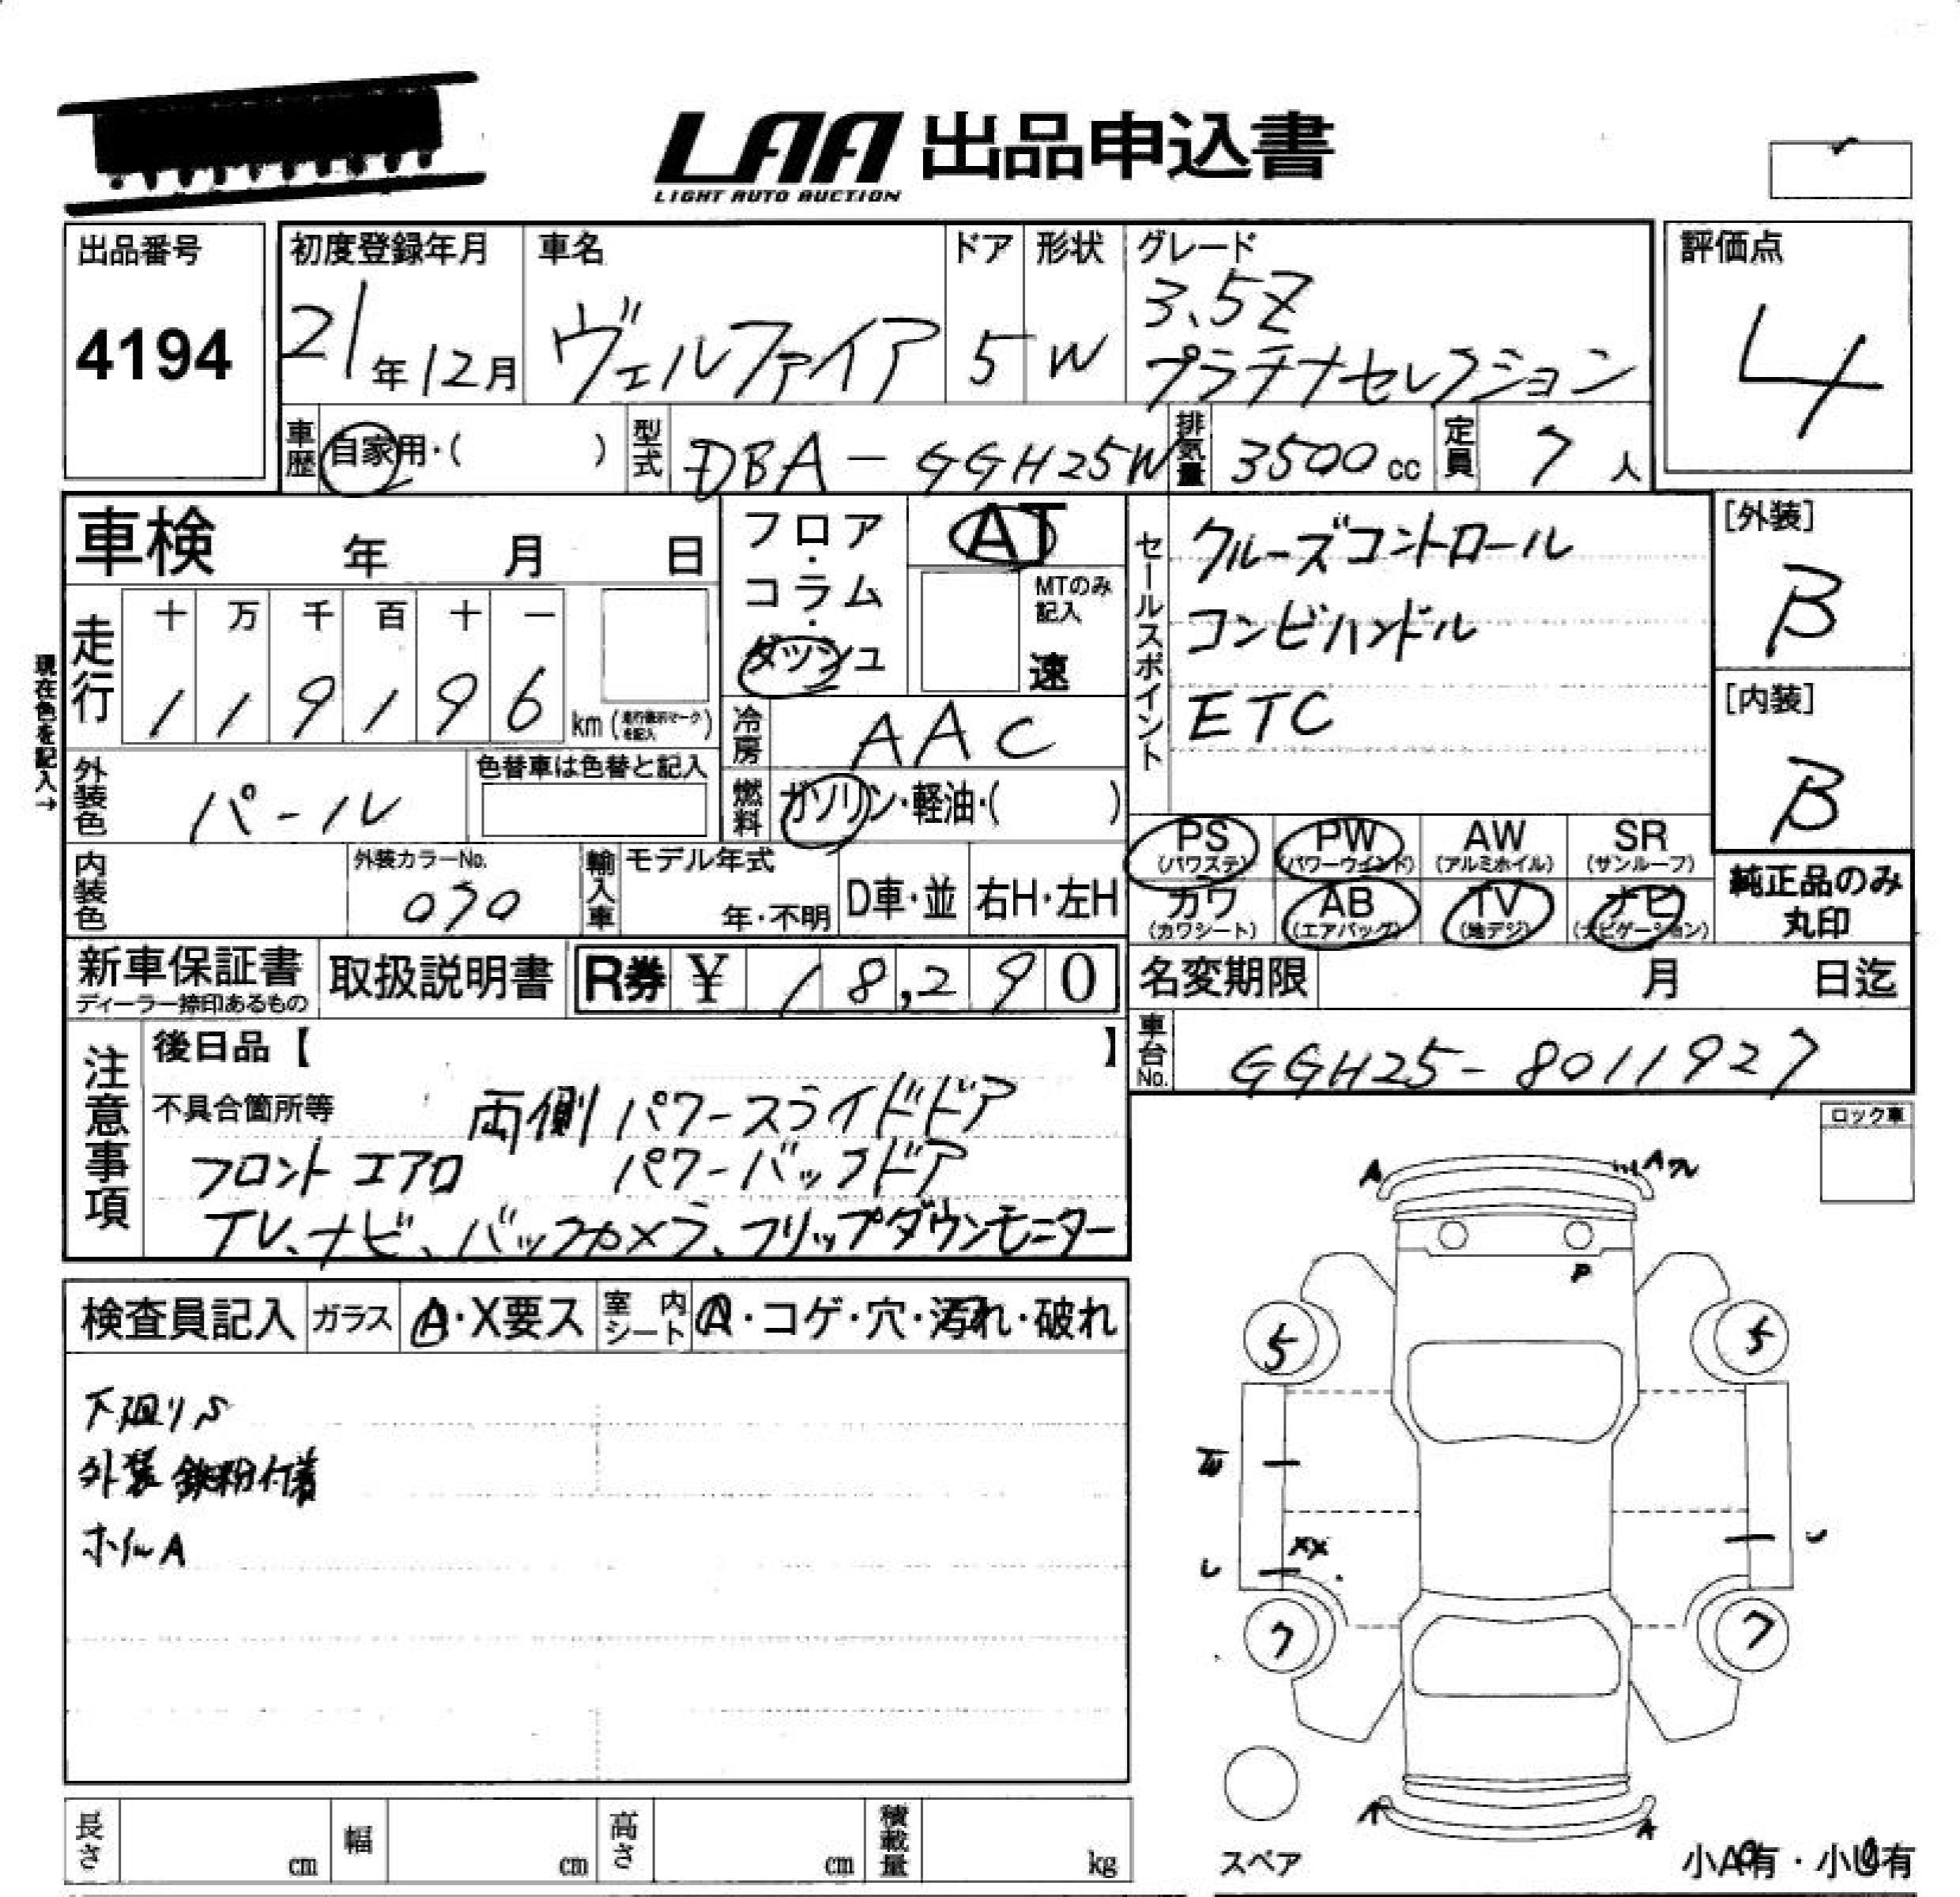 LAA 出品申込書
LIGHT AUTO AUCTION
出品番号
4194
初度登録年月
21年12月
車名
ヴェルファイア
ドア
5
形状
W
グレード
3.5Z
プラチナセレクション
評価点
4
車歴
自家用・( )
型式
DBA-GGH25W
排気量
3500cc
定員
7人
車検 年 月 日
フロア・コラム・ダッシュ
AT
MTのみ記入
速
セールスポイント
クルーズコントロール
コンビハンドル
ETC
[外装]
B
[内装]
B
現在色を記入→
走行
十 万 千 百 十 一
1 1 9 1 9 6 km
冷房
AAC
外装色
パール
色替車は色替と記入
燃料
ガソリン・軽油・( )
PS (パワステ)
PW (パワーウインド)
AW (アルミホイル)
SR (サンルーフ)
カワ (カワシート)
AB (エアバッグ)
TV (地デジ)
ナビ (ナビゲーション)
純正品のみ
丸印
内装色
外装カラーNo.
070
輸入車
モデル年式
年・不明
D車・並
右H・左H
新車保証書
ディーラー捺印あるもの
取扱説明書
R券 ¥ 18,290
名変期限 月 日迄
車台No.
GGH25-8011927
注意事項
後日品【 】
不具合箇所等
両側パワースライドドア
フロントエアロ パワーバックドア
TV、ナビ、バックカメラ、フリップダウンモニター
ロック車
A
A
P
5
5
XX
レ
レ
7
7
A
A
検査員記入
ガラス
A・X要ス
室内シート
A・コゲ・穴・汚れ・破れ
下廻りS
外装 鉄粉付着
ホイールA
長さ cm
幅 cm
高さ cm
積載量 kg
スペア
小A有・小U有